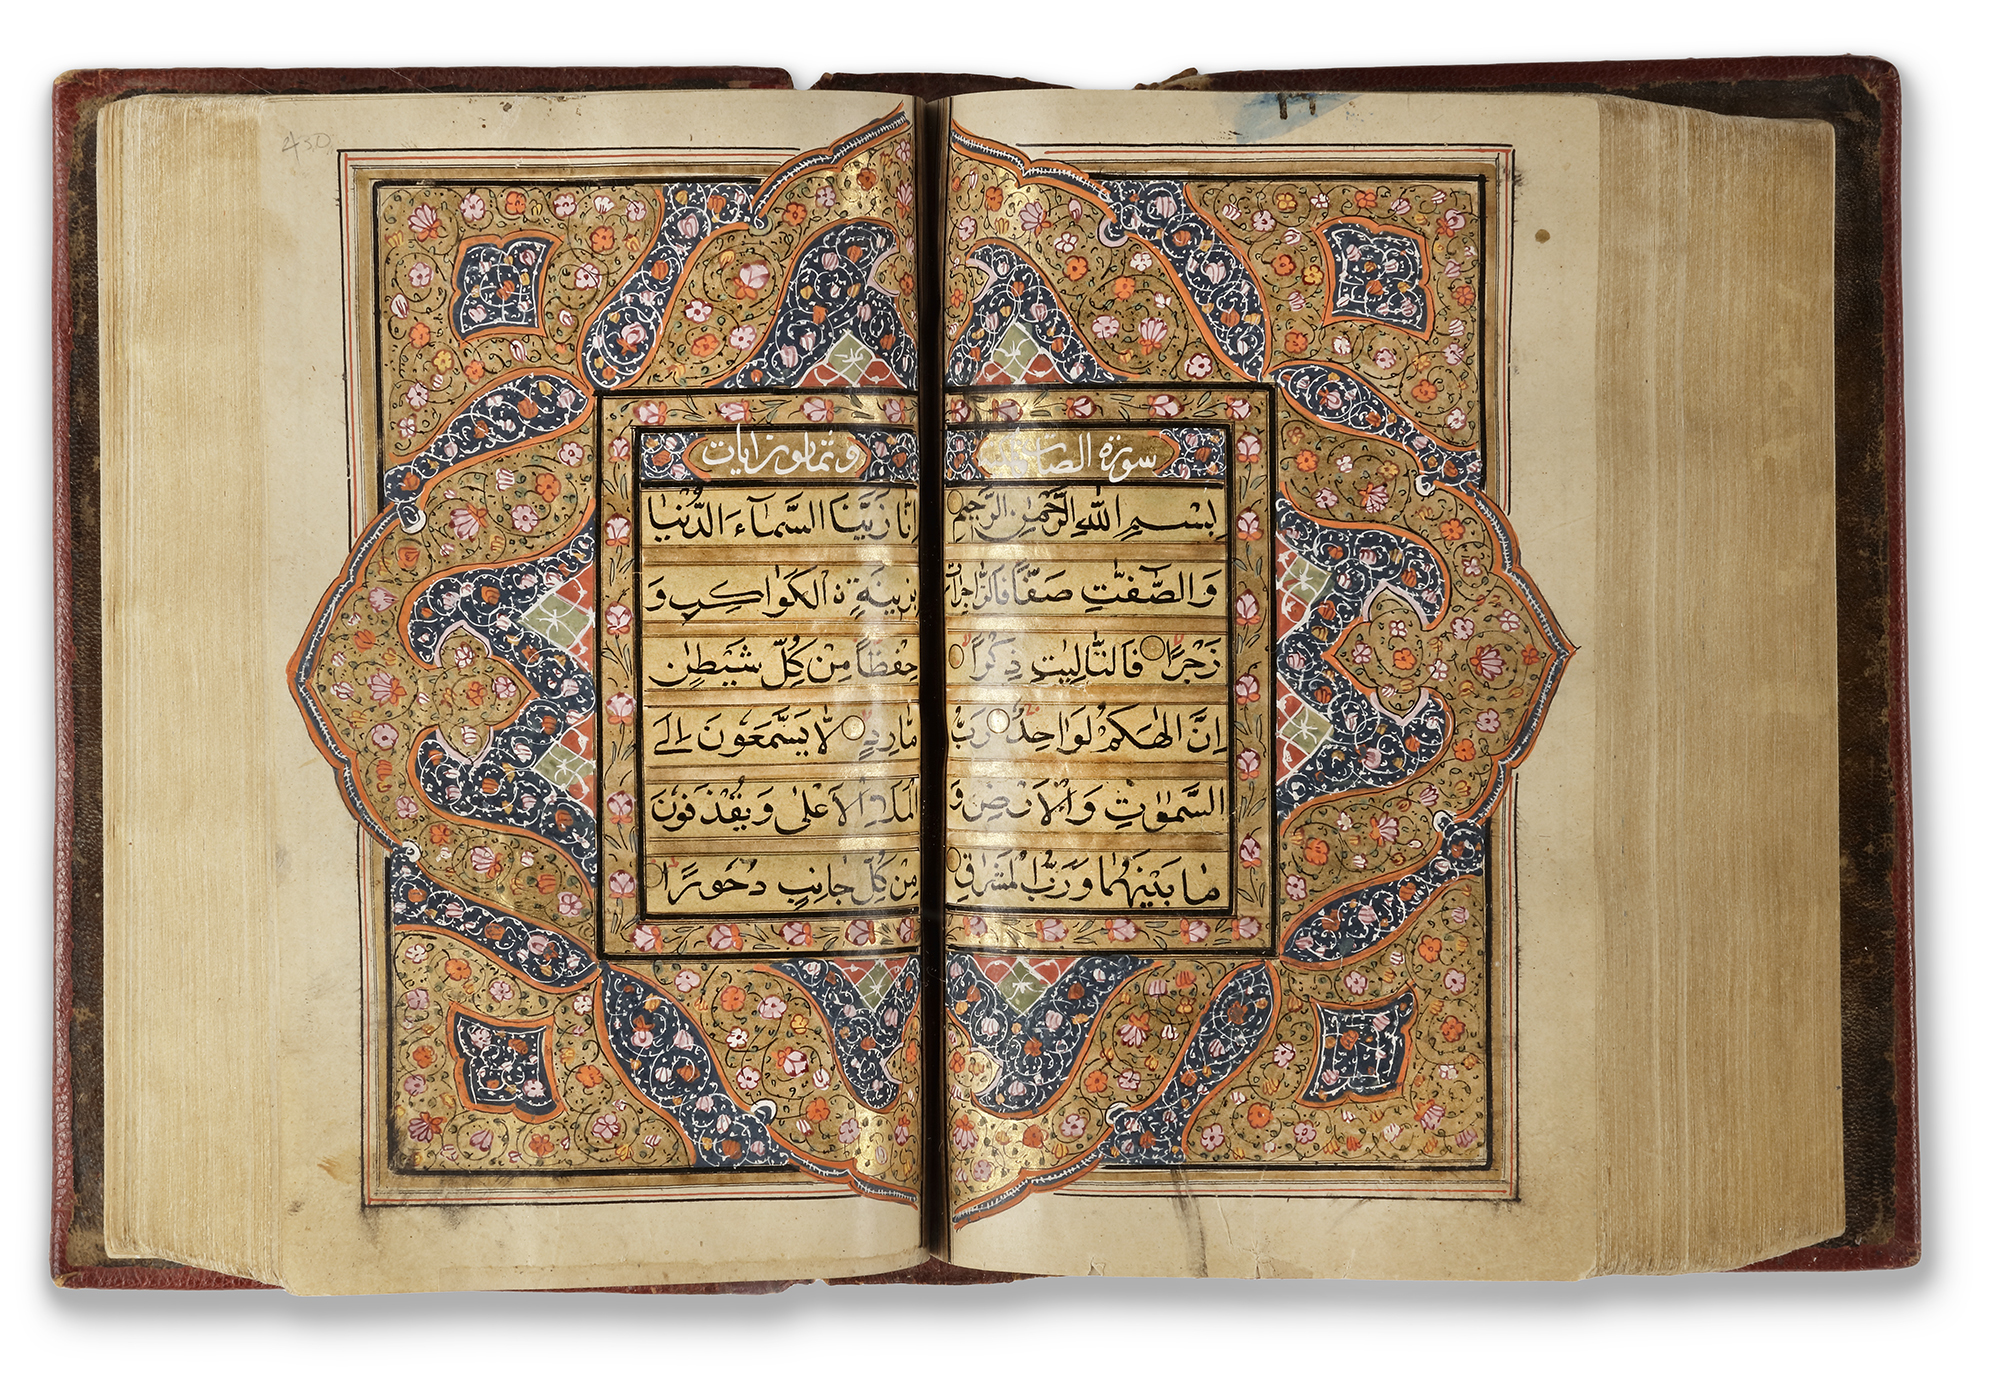 سورة الصافات
بِسْمِ اللّٰهِ الرَّحْمٰنِ الرَّحِيمِ
وَالصّٰفّٰتِ صَفًّا فَالزّٰجِرَاتِ
زَجْرًا فَالتّٰلِيٰتِ ذِكْرًا
اِنَّ اِلٰهَكُمْ لَوَاحِدٌ رَبُّ
السَّمٰوٰتِ وَالْاَرْضِ وَ
مَا بَيْنَهُمَا وَرَبُّ الْمَشَارِقِ
آيات
اِنَّا زَيَّنَّا السَّمَآءَ الدُّنْيَا
بِزِينَةٍ ۨ الْكَوَاكِبِ وَ
حِفْظًا مِنْ كُلِّ شَيْطٰنٍ
مَارِدٍ لَا يَسَّمَّعُونَ اِلَى
الْمَلَاِ الْاَعْلٰى وَيُقْذَفُونَ
مِنْ كُلِّ جَانِبٍ دُحُورًا
450